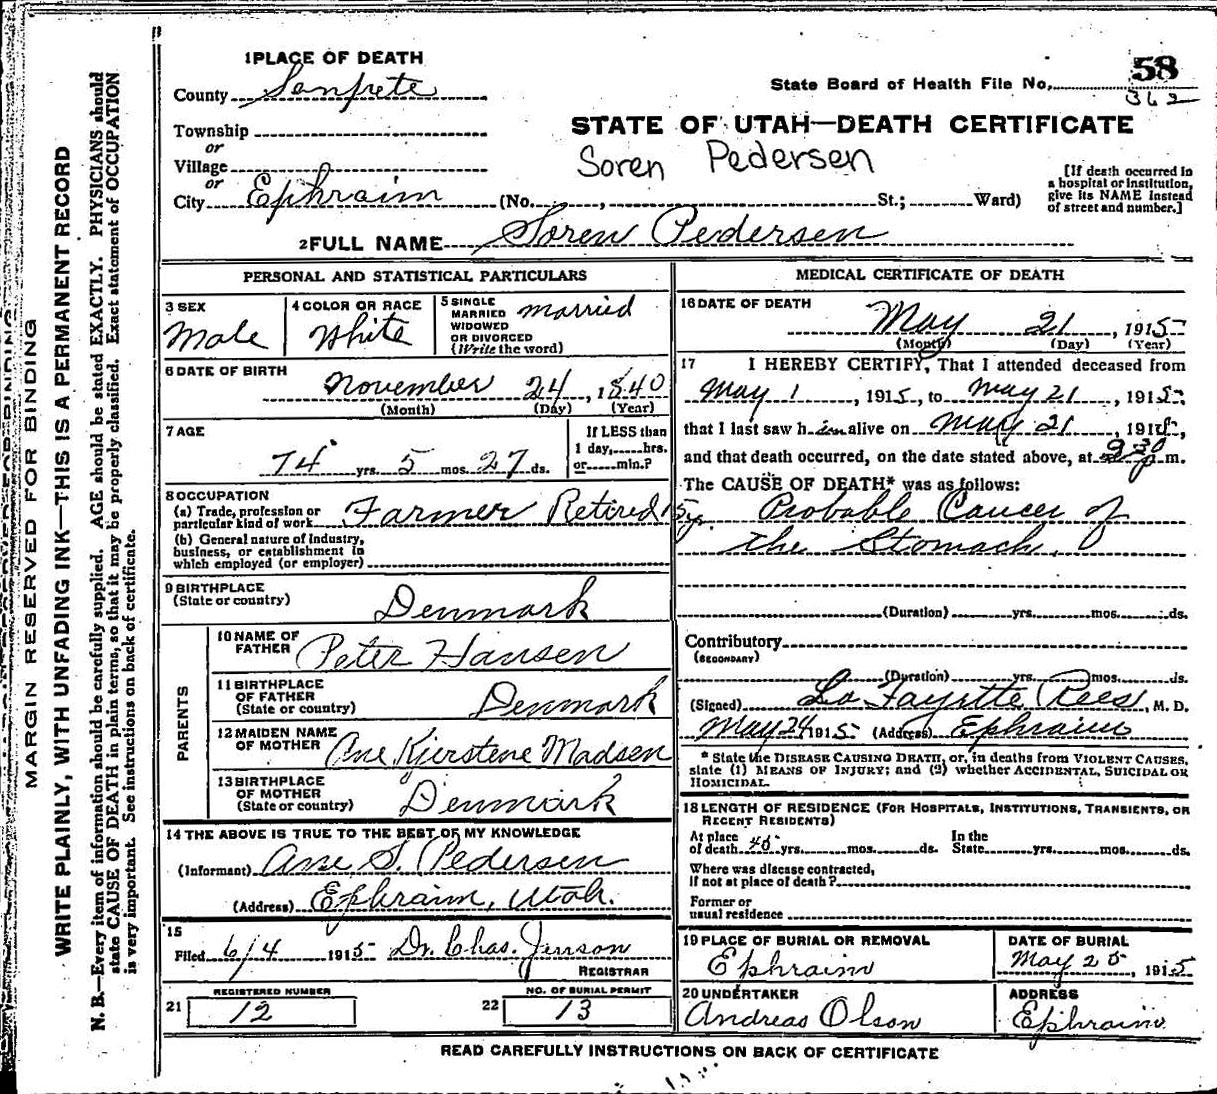 1 PLACE OF DEATH
County Sanpete
Township
or
Village
or
City Ephraim (No. , St.; Ward)
State Board of Health File No. 58
362
STATE OF UTAH—DEATH CERTIFICATE
Soren Pedersen
[If death occurred in
a hospital or institution,
give its NAME instead
of street and number.]
2 FULL NAME Soren Pedersen
PERSONAL AND STATISTICAL PARTICULARS
3 SEX
Male
4 COLOR OR RACE
White
5 SINGLE
MARRIED
WIDOWED
OR DIVORCED
(Write the word)
married
6 DATE OF BIRTH
November 24, 1840
(Month) (Day) (Year)
7 AGE
74 yrs. 5 mos. 27 ds.
If LESS than
1 day, hrs.
or min.?
8 OCCUPATION
(a) Trade, profession or
particular kind of work Farmer Retired 15 yr.
(b) General nature of industry,
business, or establishment in
which employed (or employer)
9 BIRTHPLACE
(State or country)
Denmark
PARENTS
10 NAME OF
FATHER
Peter Hansen
11 BIRTHPLACE
OF FATHER
(State or country)
Denmark
12 MAIDEN NAME
OF MOTHER
Ane Kjerstene Madsen
13 BIRTHPLACE
OF MOTHER
(State or country)
Denmark
14 THE ABOVE IS TRUE TO THE BEST OF MY KNOWLEDGE
(Informant) Ane S. Pedersen
(Address) Ephraim, Utah.
15
Filed 6/4 1915 Dr. Chas. Jenson
REGISTRAR
21
REGISTERED NUMBER
12
22
NO. OF BURIAL PERMIT
13
MEDICAL CERTIFICATE OF DEATH
16 DATE OF DEATH
May 21, 1915
(Month) (Day) (Year)
17 I HEREBY CERTIFY, That I attended deceased from
May 1, 1915, to May 21, 1915,
that I last saw h im alive on May 21, 1915,
and that death occurred, on the date stated above, at 9 30 p m.
The CAUSE OF DEATH* was as follows:
Probable Cancer of
the Stomach.
(Duration) yrs. mos. ds.
Contributory
(SECONDARY)
(Duration) yrs. mos. ds.
(Signed) La Fayette Rees, M. D.
May 24 1915 (Address) Ephraim
* State the DISEASE CAUSING DEATH, or, in deaths from VIOLENT CAUSES,
state (1) MEANS OF INJURY; and (2) whether ACCIDENTAL, SUICIDAL OR
HOMICIDAL.
18 LENGTH OF RESIDENCE (FOR HOSPITALS, INSTITUTIONS, TRANSIENTS, OR
RECENT RESIDENTS)
At place In the
of death yrs. mos. ds. State yrs. mos. ds.
Where was disease contracted,
if not at place of death?
Former or
usual residence
19 PLACE OF BURIAL OR REMOVAL
Ephraim
DATE OF BURIAL
May 25, 1915
20 UNDERTAKER
Andreas Olson
ADDRESS
Ephraim
READ CAREFULLY INSTRUCTIONS ON BACK OF CERTIFICATE
MARGIN RESERVED FOR BINDING
WRITE PLAINLY, WITH UNFADING INK—THIS IS A PERMANENT RECORD
N. B.—Every item of information should be carefully supplied. AGE should be stated EXACTLY. PHYSICIANS should
state CAUSE OF DEATH in plain terms, so that it may be properly classified. Exact statement of OCCUPATION
is very important. See instructions on back of certificate.